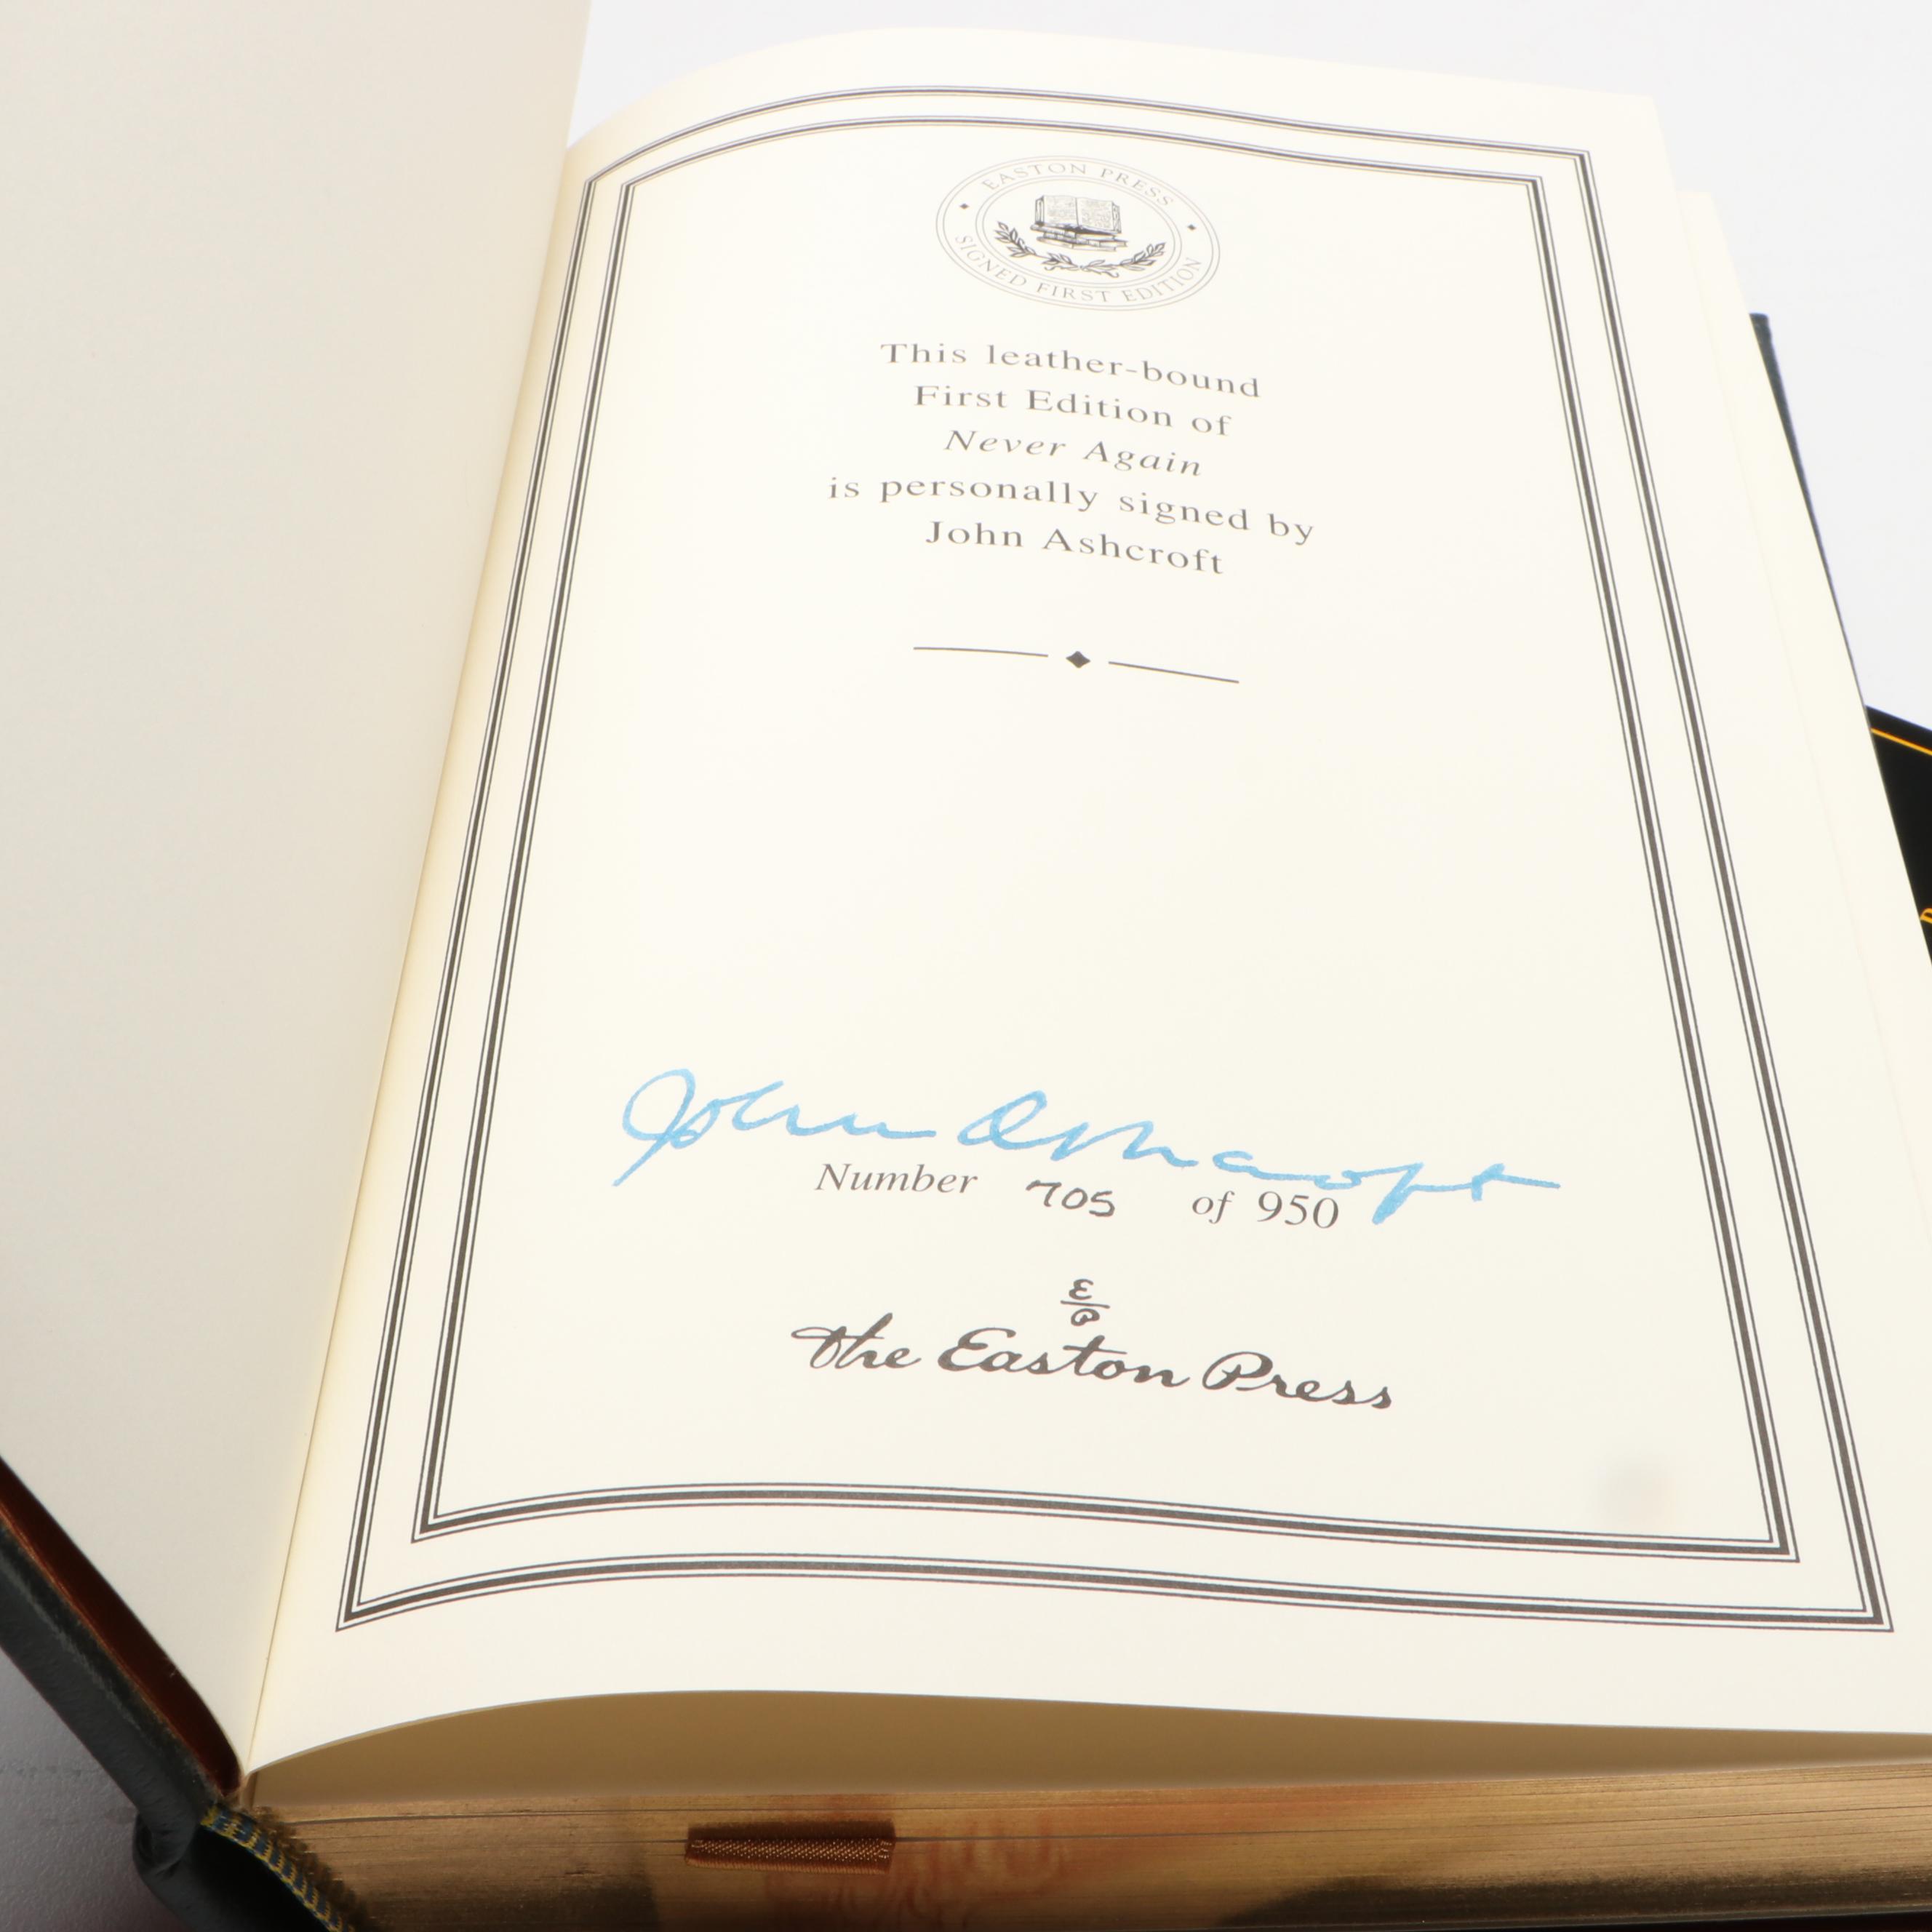 EASTON PRESS
SIGNED FIRST EDITION
This leather-bound
First Edition of
Never Again
is personally signed by
John Ashcroft
John Ashcroft
Number 705 of 950
E/P
the Easton Press